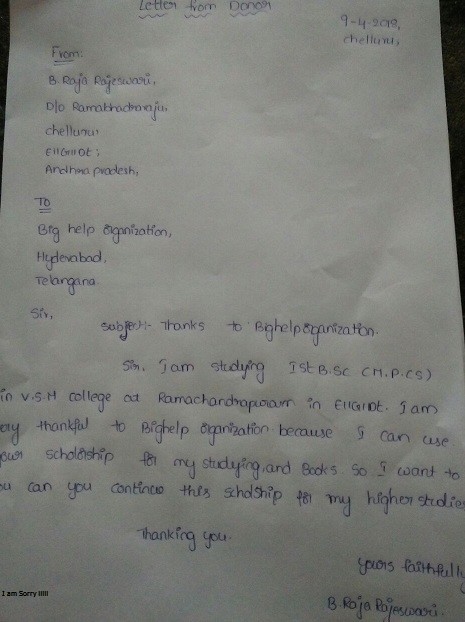 Letter from Donor
9-4-2019,
chelluru,
From:
B. Raja Rajeswari,
D/o Ramabhadraraju,
chelluru,
E11G11Dt;
Andhra pradesh,
To
Big help organization,
Hyderabad,
Telangana
Sir,
Subject:- Thanks to Bighelp organization.
Sir, I am studying Ist B.SC (M.P.CS)
in V.S.M college at Ramachandrapuram in E11G11Dt. I am
ery thankful to Bighelp organization because I can use
your scholership for my studying, and Books. So I want to
ou can you continue this scholship for my higher studies
Thanking you.
yours faithfully
B. Raja Rajeswari.
I am Sorry !!!!!